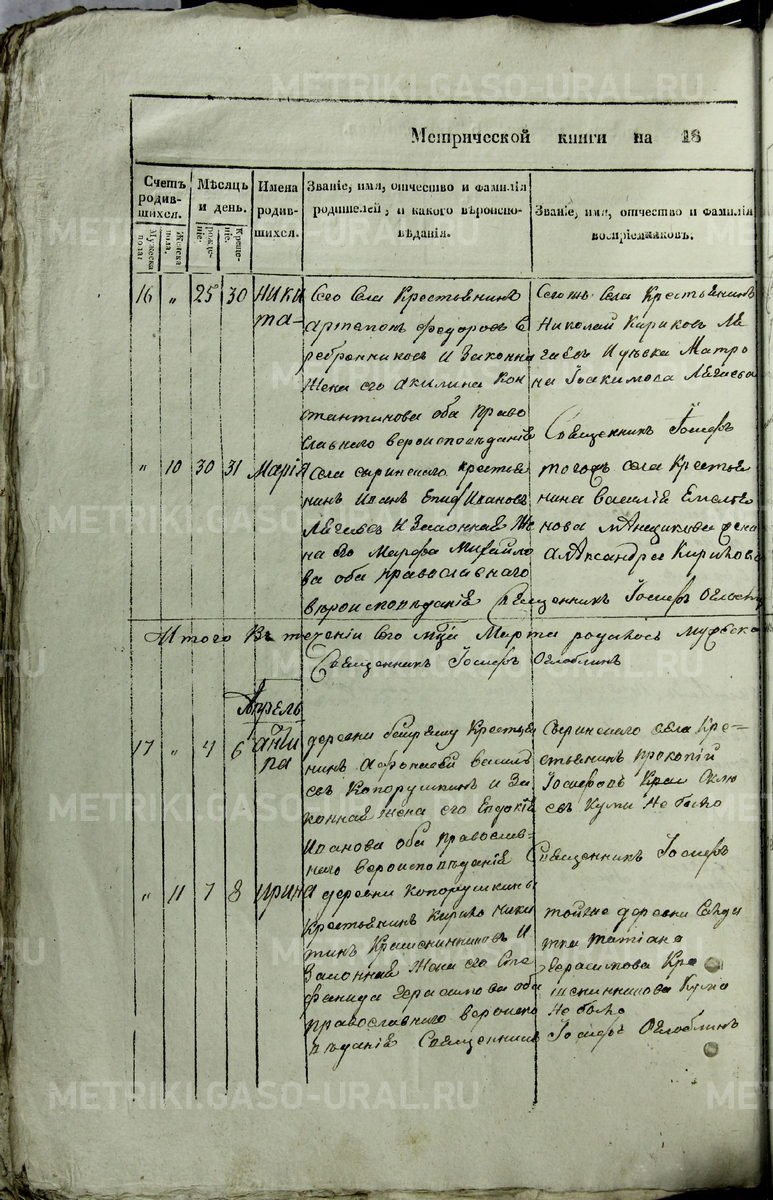 METRIKI.GASO-URAL.RU
Метрической книги на 18
Счетъ родив- шихся.
Мужеска пола.
Женска пола.
Мѣсяцъ и день.
рожде- ніе.
Креще- ніе.
Имена родив- шихся.
Званіе, имя, отчество и фамилія
родителей, и какого вѣроиспо-
вѣданія.
Званіе, имя, отчество и фамилія
воспріемниковъ.
16 „ 25 30 Ники
та
Сего Села Крестьянинъ
Артемонъ Федоровъ Се
ребренниковъ и Законна
Жена его Акилина Кон
стантинова оба право
славнаго вероисповеданія
Сегожъ села Крестьянинъ
Николай Кириковъ Ле
Матро
на Іоакимова
Священникъ Іосифъ
„ 10 30 31 Марія
Села сыринскаго крестья
нинъ Иванъ Ивановъ
и Законная Же
на его Марфа Михайло
ва оба православнаго
вѣроисповѣданія
тогожъ села Крестья
нина Василія Емелья
нова жена
Александра Кирикова
Священникъ Іосифъ
Итого Въ теченіи сего мца Марта родилось мужска
Священникъ Іосифъ Оглоблинъ
Апрель
17 „ 4 6 Анти
па
деревни Крестья
нинъ Афонасей Василь
евъ Копорушкинъ и За
конная жена его Евдокія
Иванова оба православ-
наго вероисповѣданія
Сыринскаго села Кре-
стьянинъ Прокопій
Іосифовъ
Кумы не было
Священникъ Іосифъ
„ 11 7 8 Ирина
деревни Копорушкины
Крестьянинъ Кирило Ники
тинъ Крашенинниковъ и
Законная Жена его Сте
фанида Герасимова оба
православнаго вероиспо
вѣданія
тойже деревни
Татіана
Герасимова Кра
шенинникова Кума
не было
Священникъ Іосифъ Оглоблинъ